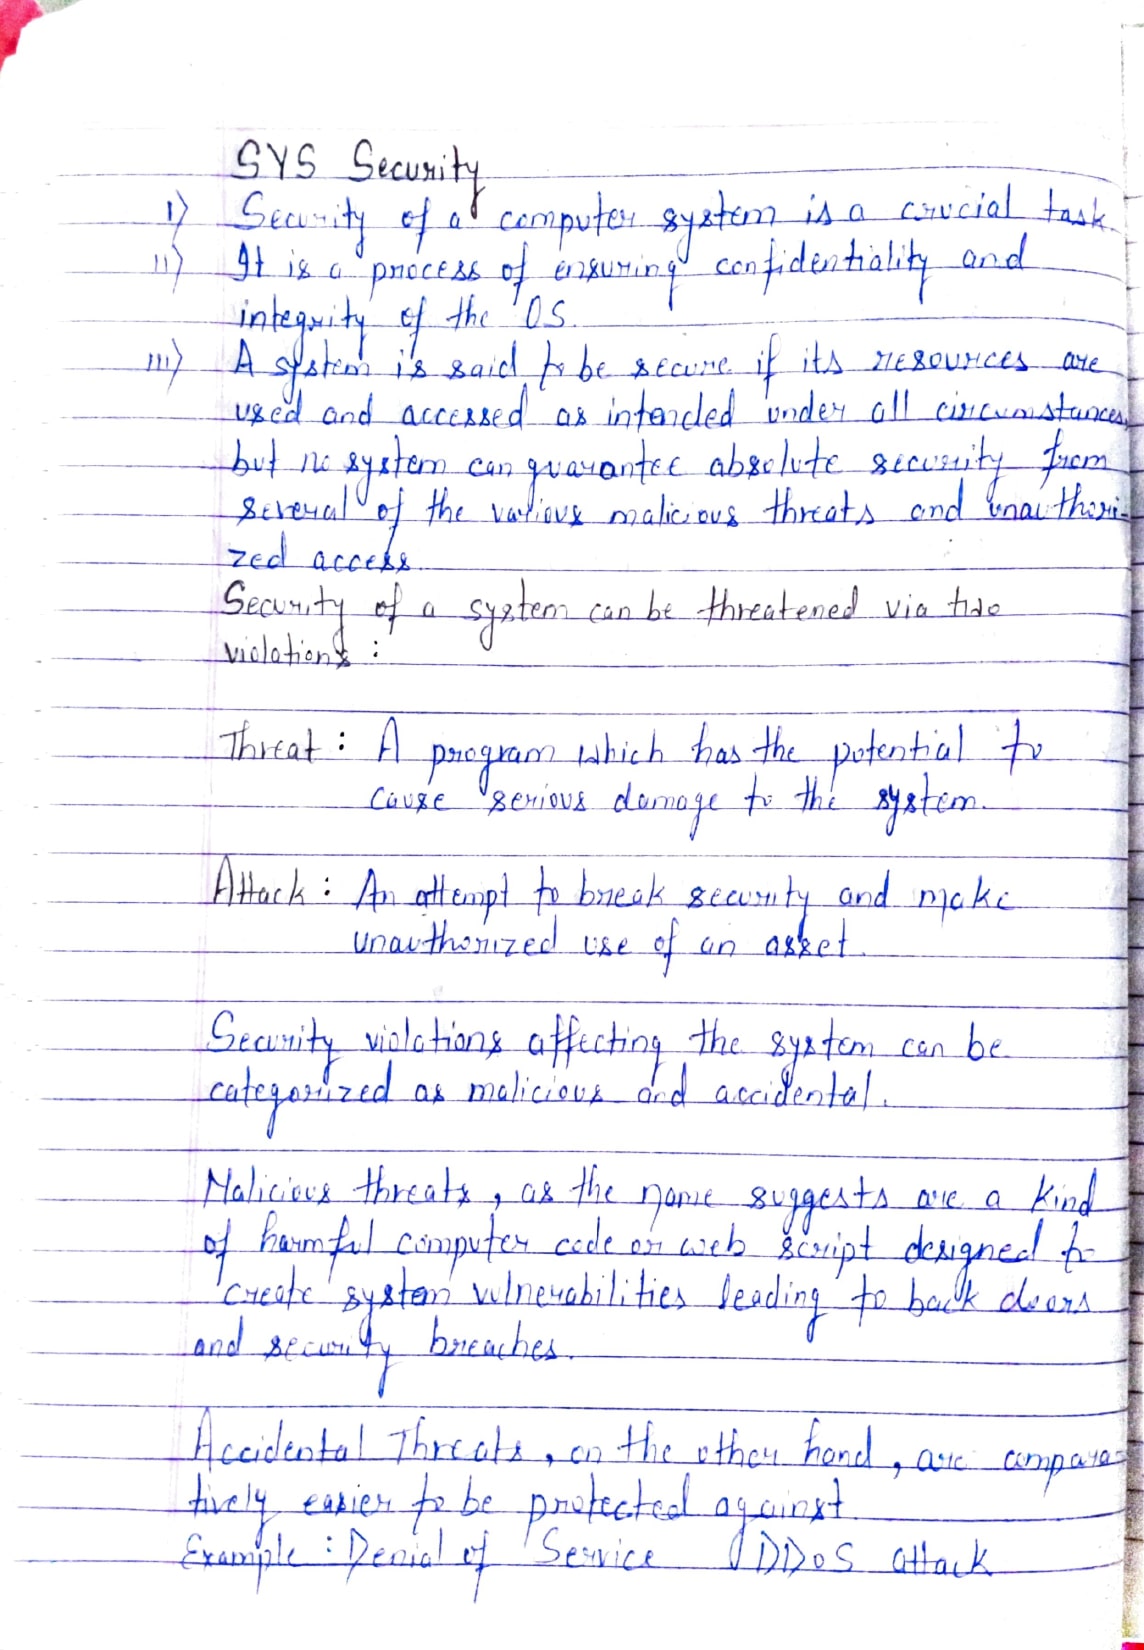 SYS Security
I) Security of a computer system is a crucial task.
II) It is a process of ensuring confidentiality and
integrity of the OS.
III) A system is said to be secure if its resources are
used and accessed as intended under all circumstances,
but no system can guarantee absolute security from
several of the various malicious threats and unauthori-
zed access.
Security of a system can be threatened via two
violations :
Threat : A program which has the potential to
cause serious damage to the system.
Attack : An attempt to break security and make
unauthorized use of an asset.
Security violations affecting the system can be
categorized as malicious and accidental.
Malicious threats, as the name suggests are a kind
of harmful computer code or web script designed to
create system vulnerabilities leading to back doors
and security breaches.
Accidental Threats, on the other hand, are compara-
tively easier to be protected against.
Example : Denial of Service DDoS attack